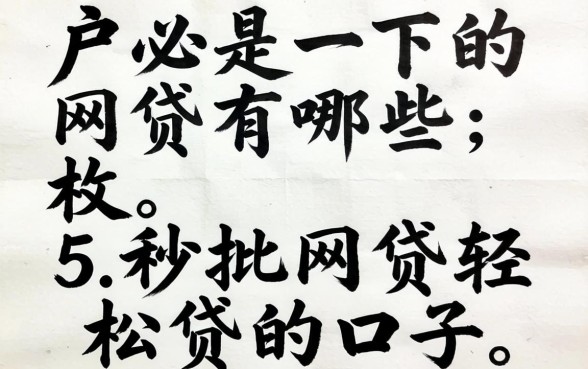 户必是一下的
网贷有哪些；
枚。
5.秒批网贷轻
松贷的口子。